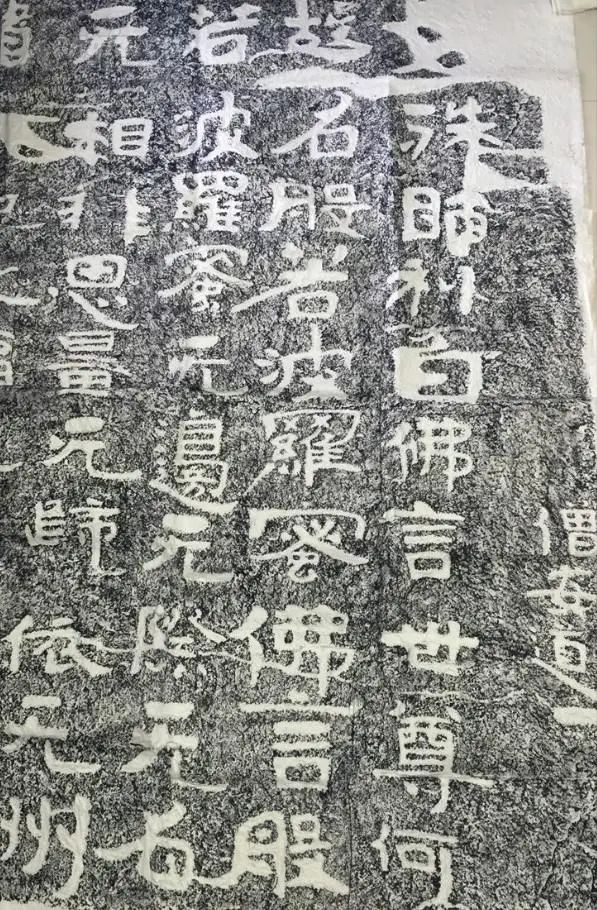 僧安道一
文殊師利白佛言世尊何
故名般若波羅蜜佛言般
若波羅蜜无邊无際无名
无相非思量无歸依无洲